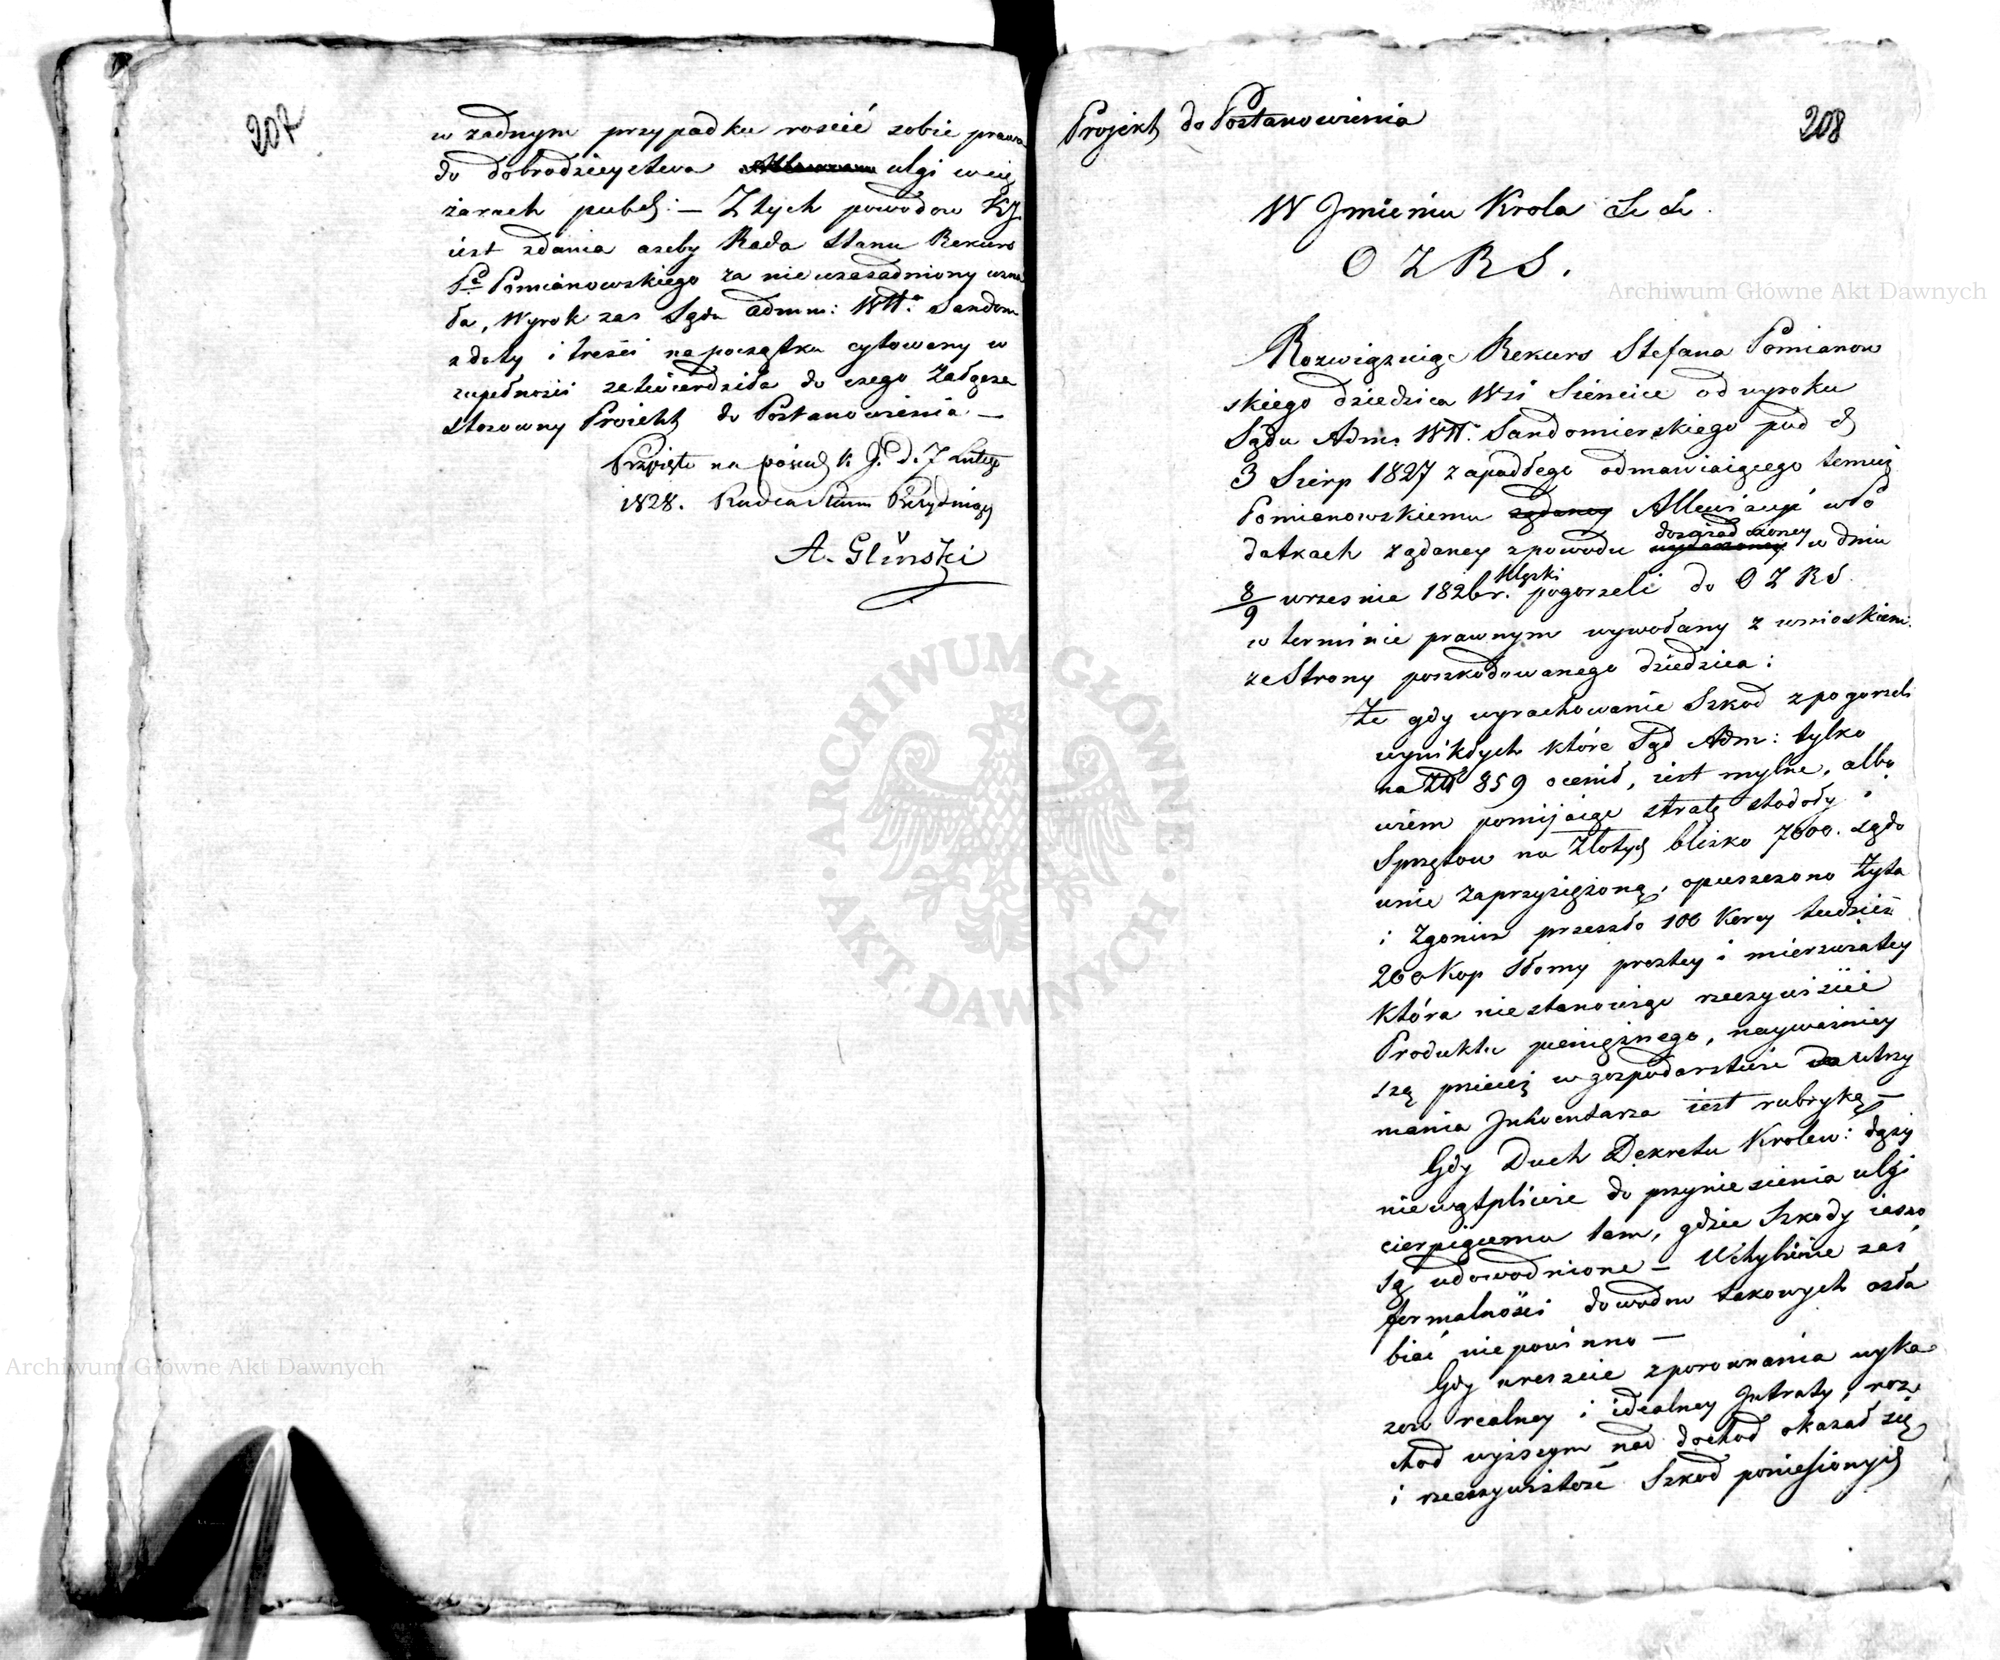 207
w zadnym przypadku roscić sobie prawa
do dobrodzieystwa ulgi w cię
żarach publ: — Z tych powodow KJ.
iest zdania ażeby Rada Stanu Rekurs
Pa Pomianowskiego za nieuzasadniony uzna
ła, Wyrok zas Sądu admin: Wa Sandom
z daty i treści na początku cytowany w
zupełności zatwierdziła do czego załącza
stosowny Proiekt do Postanowienia —
Przyięto na posied: K. J. d. 7 Lutego
1828. Radca Stanu Prezyduiący
A. Gliński
208
Projekt do Postanowienia
W Jmieniu Krola & &.
O Z R S.
Rozwiązuiąc Rekurs Stefana Pomianow
skiego dziedzica Wsi Sienice od wyroku
Sądu Adm: Wa Sandomierskiego pod d
3 Sierp 1827 zapadłego odmawiaiącego temuż
Pomianowskiemu żądaney Allewiacyi w Po
datkach żądaney z powodu doświadczoney wydarzoney w dniu
8/9 wrzesnie 1826 r. klęski pogorzeli do O Z R S.
w terminie prawnym wywołany z wnioskiem
ze Strony poszkodowanego dziedzica:
Że gdy wyrachowanie Szkod z pogorzeli
wynikłych które Sąd Adm: tylko
na Zł 859 ocenił, iest mylne, albo
wiem pomijaiąc stratę stodoły i
Sprzętow na Złotych blisko 7000. sądo
wnie zaprzysiężoną, opuszczono Żyta
i Zgonin przeszło 100 Korcy tudzież
200 Kop Słomy prostey i mierzwiatey
która niestanowiąc rzeczywiście
Produktu pieniężnego, nayważniey
szą przecież w gospodarstwie do utrzy
mania Jnwentarza iest rubryką —
Gdy Duch Dekretu Krolew: dąży
niewątpliwie do przyniesienia ulgi
cierpiącemu tam, gdzie Szkody iasno
są udowodnione — Uchybienie zaś
formalności dowodow takowych osła
biać niepowinno —
Gdy nreszcie z porownania wyka
zow realney i idealney Jntraty, roz
chod wyższym nad dochod okazał się
i rzeczywistość Szkod poniesionych
Archiwum Główne Akt Dawnych
Archiwum Główne Akt Dawnych
ARCHIWUM GŁÓWNE AKT DAWNYCH